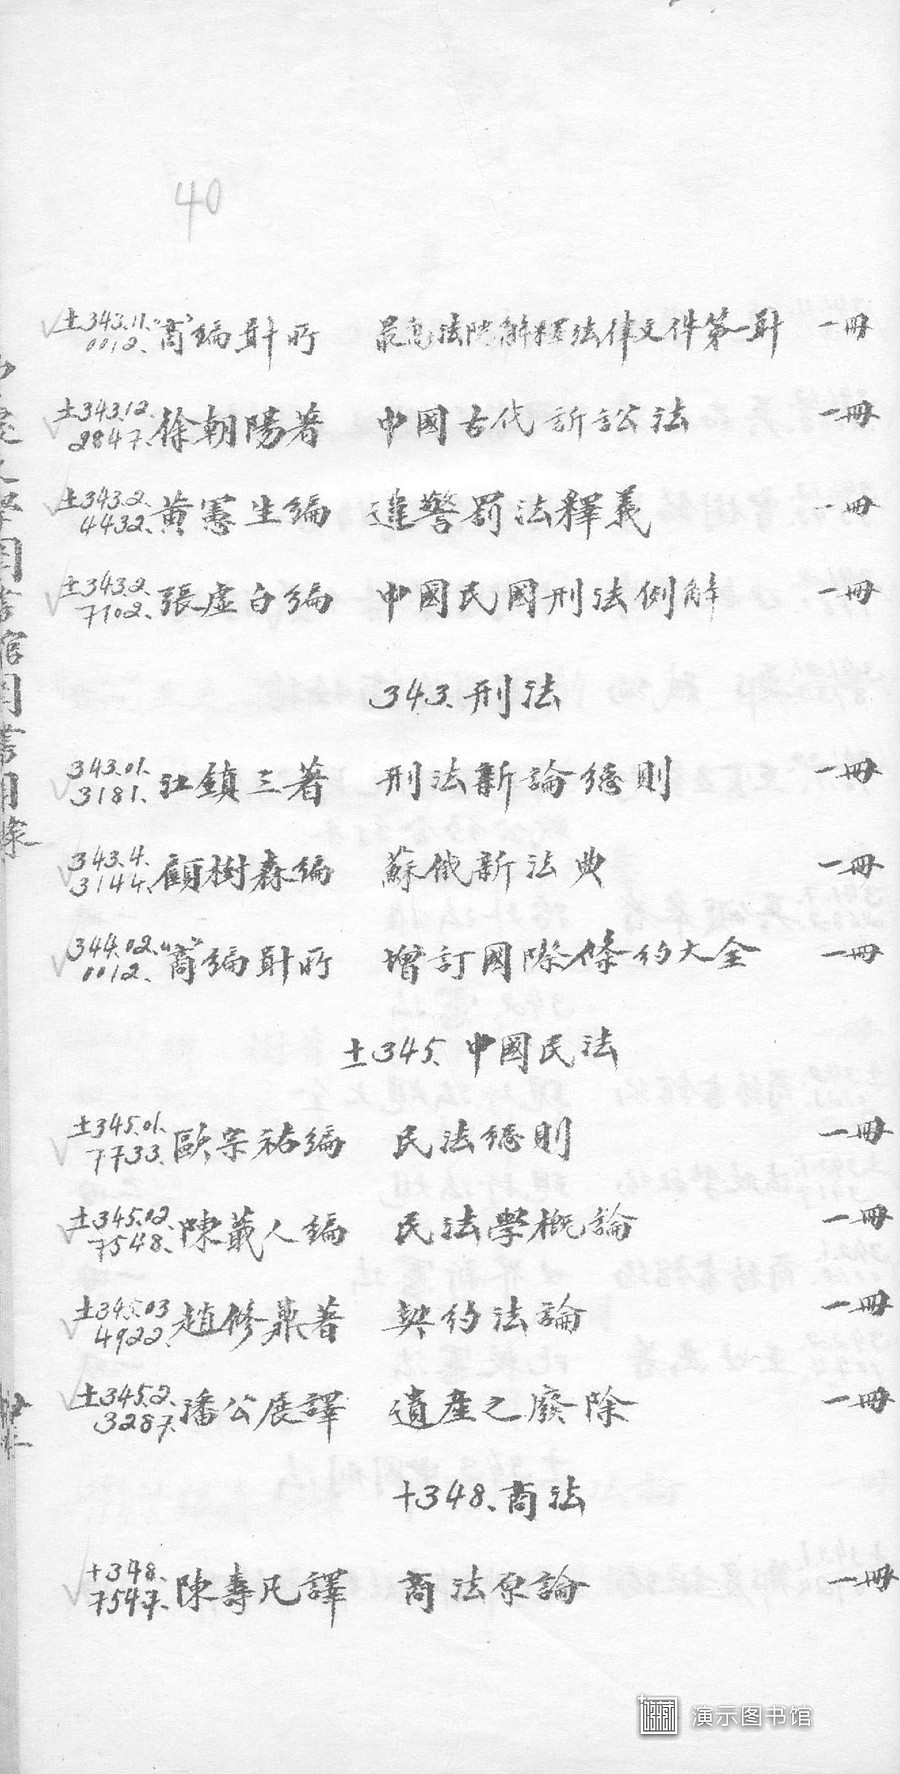 40
±343.11."
0012. 商編輯所 最高法院解釋法律文件第一輯 一冊
±343.12.
2847. 徐朝陽著 中國古代訴訟法 一冊
±343.2.
4432. 黃憲生編 違警罰法釋義 一冊
±343.2.
7102. 張虛白編 中國民國刑法例解 一冊
343. 刑法
343.01.
3181. 江鎮三著 刑法新論總則 一冊
343.4.
3144. 顧樹森編 蘇俄新法典 一冊
344.02."
0012. 商編輯所 增訂國際條約大全 一冊
±345. 中國民法
±345.01.
7733. 歐宗祐編 民法總則 一冊
±345.02.
7548. 陳蕺人編 民法學概論 一冊
±345.03
4922. 趙修鼎著 契約法論 一冊
±345.2.
3287. 潘公展譯 遺產之廢除 一冊
+348. 商法
+348.
7547. 陳壽凡譯 商法原論 一冊
圖書館圖書目錄
演示图书馆